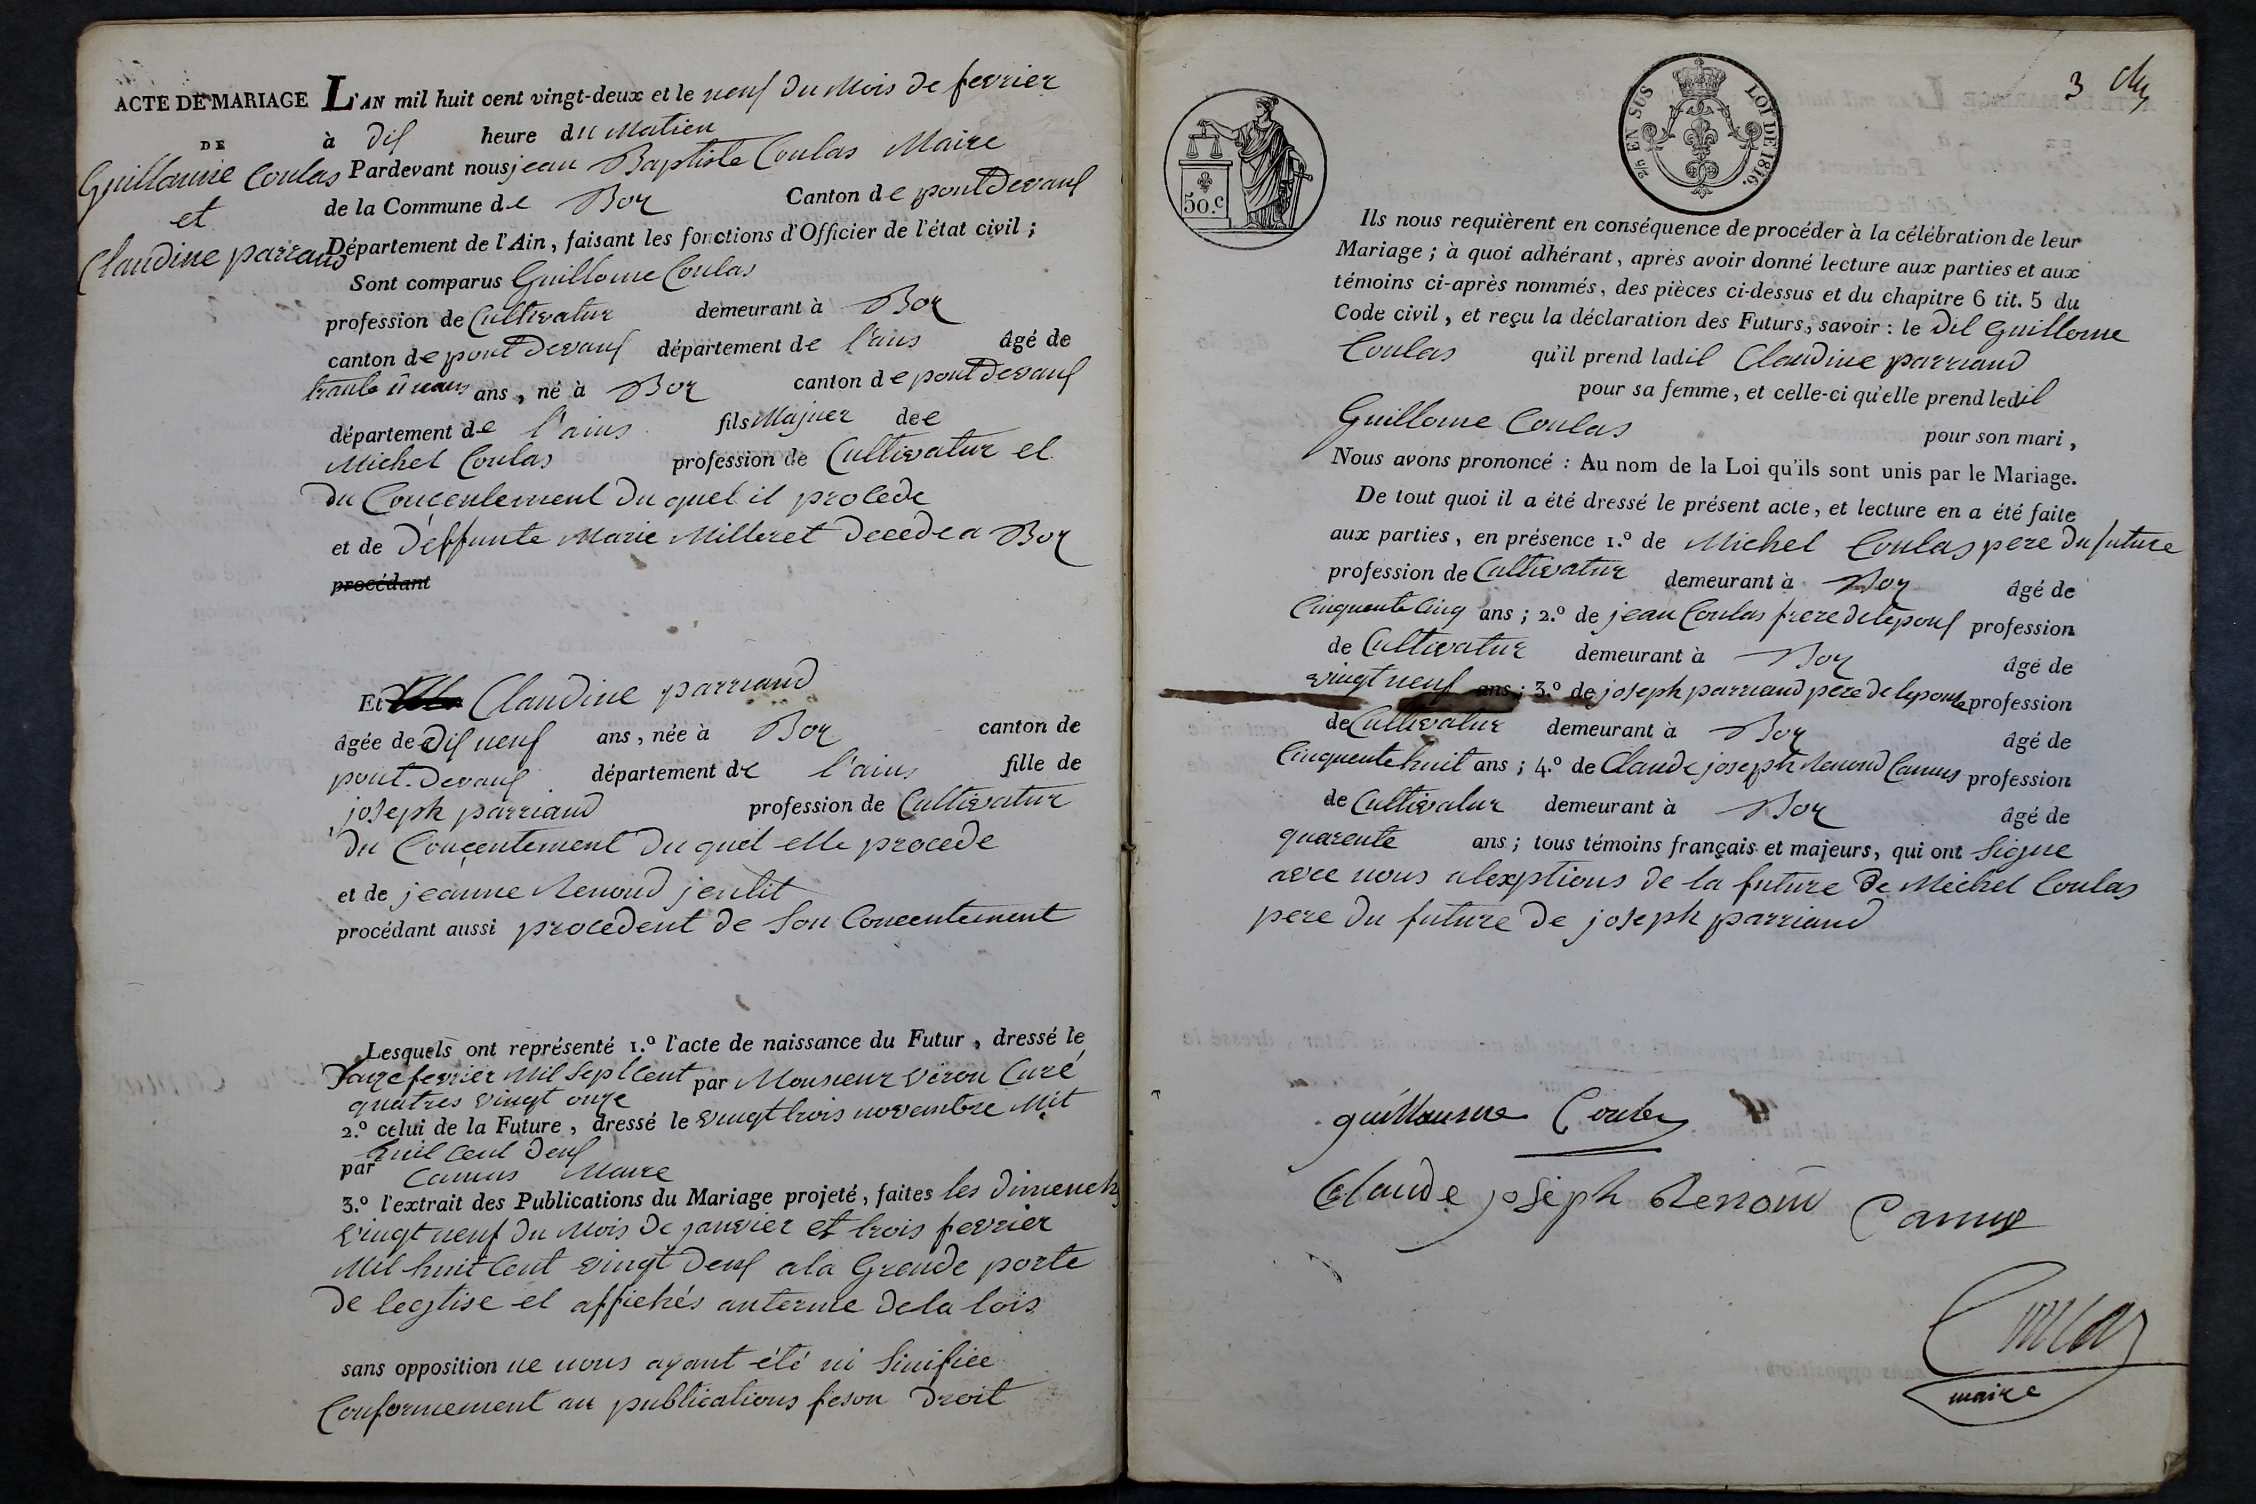 ACTE DE MARIAGE
DE
Guillaume Coulas
et
Claudine parraud
L'AN mil huit cent vingt-deux et le neuf du Mois de fevrier
à dis heure du Matien
Pardevant nous jean Baptiste Coulas Maire
de la Commune de Boz Canton de pontdevaux
Département de l'Ain, faisant les fonctions d'Officier de l'état civil ;
Sont comparus Guillome Coulas
profession de Cultivatur demeurant à Boz
canton de pont Devaux département de l'ains âgé de
trante ans, né à Boz canton de pontdevaux
département de l'ains fils Majuer de
Michel Coulas profession de Cultivatur et
du Concentement du quel il procede
et de deffunte Marie Milleret decede a Boz
procédant
Et Claudine parriaud
âgée de dis neuf ans, née à Boz canton de
pont-Devaux département de l'ains fille de
joseph parriaud profession de Cultivatur
du Concentement du quel elle procede
et de jeanne Renoud
procédant aussi procedent de son Concentement
Lesquels ont représenté 1.º l'acte de naissance du Futur, dressé le
fevrier Mil Sept Cent par Monsieur Véron Curé
quatres vingt onze
2.º celui de la Future, dressé le vingt trois novembre Mil
huit Cent deux
par Camus Maire
3.º l'extrait des Publications du Mariage projeté, faites les dimench
vingt neuf du Mois de janvier et trois fevrier
Mil huit Cent vingt deux a la Grende porte
de leglise et affichés auterme de la lois
sans opposition ne nous ayant été ni Sinifiee
Conformement au publications feson droit
3
50.c
2/5 EN SUS LOI DE 1816.
Ils nous requièrent en conséquence de procéder à la célébration de leur
Mariage ; à quoi adhérant, après avoir donné lecture aux parties et aux
témoins ci-après nommés, des pièces ci-dessus et du chapitre 6 tit. 5 du
Code civil, et reçu la déclaration des Futurs, savoir : le dit Guillome
Coulas qu'il prend ladit Claudine parriaud
pour sa femme, et celle-ci qu'elle prend ledit
Guillome Coulas pour son mari,
Nous avons prononcé : Au nom de la Loi qu'ils sont unis par le Mariage.
De tout quoi il a été dressé le présent acte, et lecture en a été faite
aux parties, en présence 1.º de Michel Coulas pere du future
profession de Cultivatur demeurant à Boz âgé de
Cinquente Cinq ans ; 2.º de jean Coulas frere de lepous profession
de Cultivatur demeurant à Boz âgé de
vingt neuf ans ; 3.º de joseph parriaud père de lepouse profession
de Cultivatur demeurant à Boz âgé de
Cinquente huit ans ; 4.º de Claude joseph Renoud Camus profession
de Cultivatur demeurant à Boz âgé de
quarente ans ; tous témoins français et majeurs, qui ont Signe
avec nous alexptions de la future de Michel Coulas
pere du future de joseph parriaud
guillaume Coulas
Claude joseph Renoud Camus
Coulas
maire